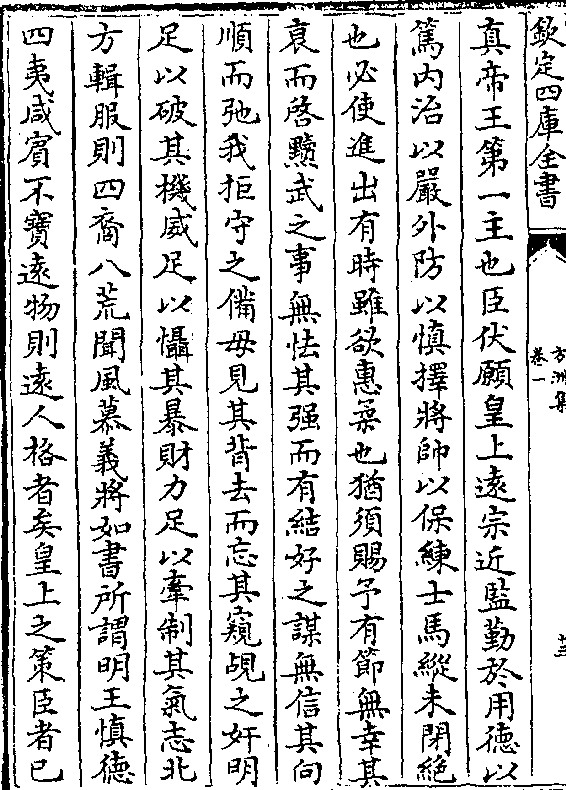 欽定四庫全書
方洲集
卷一
十三
真帝王第一主也臣伏願皇上遠宗近監勤於用德以
篤内治以嚴外防以慎擇將帥以保練士馬縱未閉絶
也必使進出有時雖欲惠來也猶須賜予有節無幸其
衰而啓黷武之事無怯其强而有結好之謀無信其向
順而弛我拒守之備毋見其背去而忘其窺覘之奸明
足以破其機威足以懾其暴財力足以牽制其氣志北
方輯服則四裔八荒聞風慕義將如書所謂明王慎德
四夷咸賓不寶遠物則遠人格者矣皇上之策臣者已